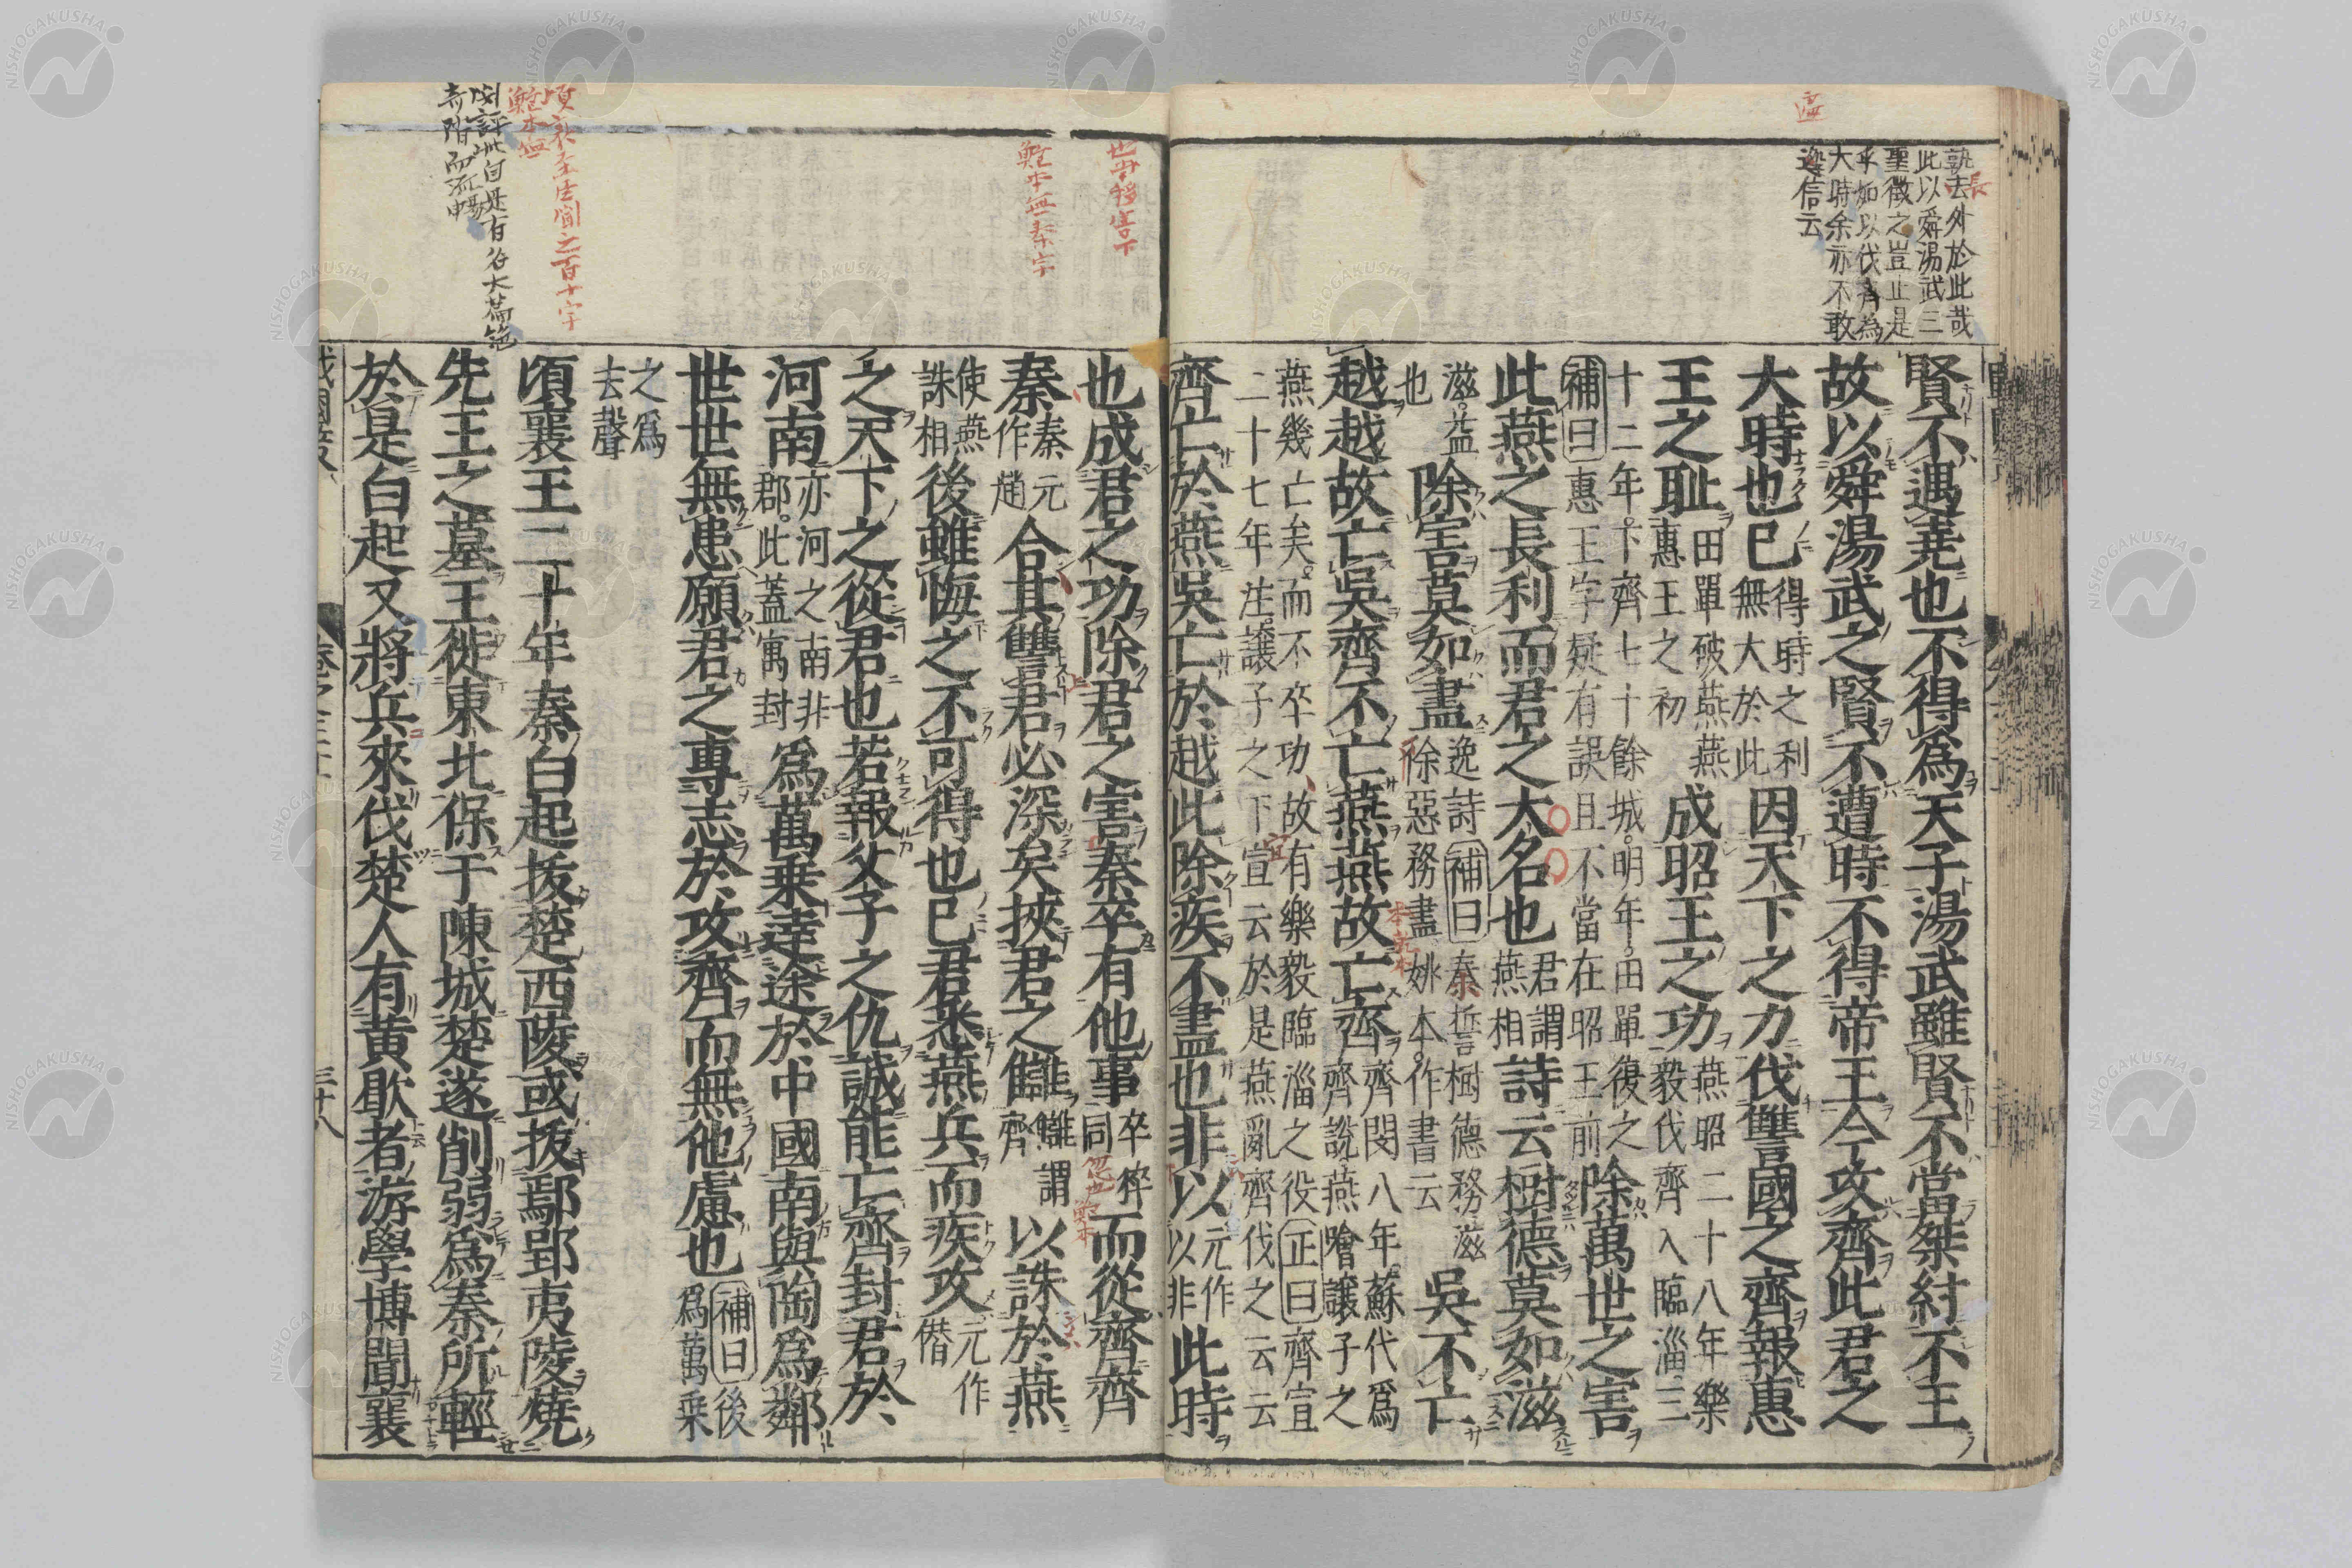 賢不遇堯也不得爲天子湯武雖賢不當桀紂不王
故以舜湯武之賢不遭時不得帝王今攻齊此君之
大時也已得時之利無大於此因天下之力伐讐國之齊報惠
王之耻田單破燕燕惠王之初成昭王之功燕昭二十八年樂毅伐齊入臨淄三
十二年下齊七十餘城明年田單復之補曰惠王字疑有誤且不當在昭王前除萬世之害
此燕之長利而君之大名也君謂燕相詩云樹德莫如滋
滋益也除害莫如盡逸詩補曰秦誓樹德務滋除惡務盡姚本作書云吳不亡
越越故亡吳齊不亡燕燕故亡齊齊閔八年蘇代爲齊說燕噲讓子之
燕幾亡矣而不卒功故有樂毅臨淄之役正曰齊宣二十七年注讓子之下宣云於是燕亂齊伐之云云
齊亡於燕吳亡於越此除疾不盡也非以元作以非此時
也成君之功除君之害秦卒有他事卒猝同而從齊齊
秦秦元作趙合其讐君必深矣挾君之讎讎讎謂齊以誅於燕
使燕誅相後雖悔之不可得也已君悉燕兵而疾攻元作僭
之天下之從君也若報父子之仇誠能亡齊封君於
河南亦河之南非郡此蓋寓封爲萬乘達途於中國南與陶爲鄰
世世無患願君之專志於攻齊而無他慮也補曰後爲萬乘
之爲去聲
頃襄王二十年秦白起拔楚西陵或拔鄢郢夷陵燒
先王之墓王徙東北保于陳城楚遂削弱爲秦所輕
於是白起又將兵來伐楚人有黃歇者游學博聞襄
孰去外於此哉
此以舜湯武三
聖徵之豈止是
乎如以伐齊爲
大時余亦不敢
逸信云
鮑本無秦字
頃襄王至聞之百十字
鮑本無
卷之三
三十八